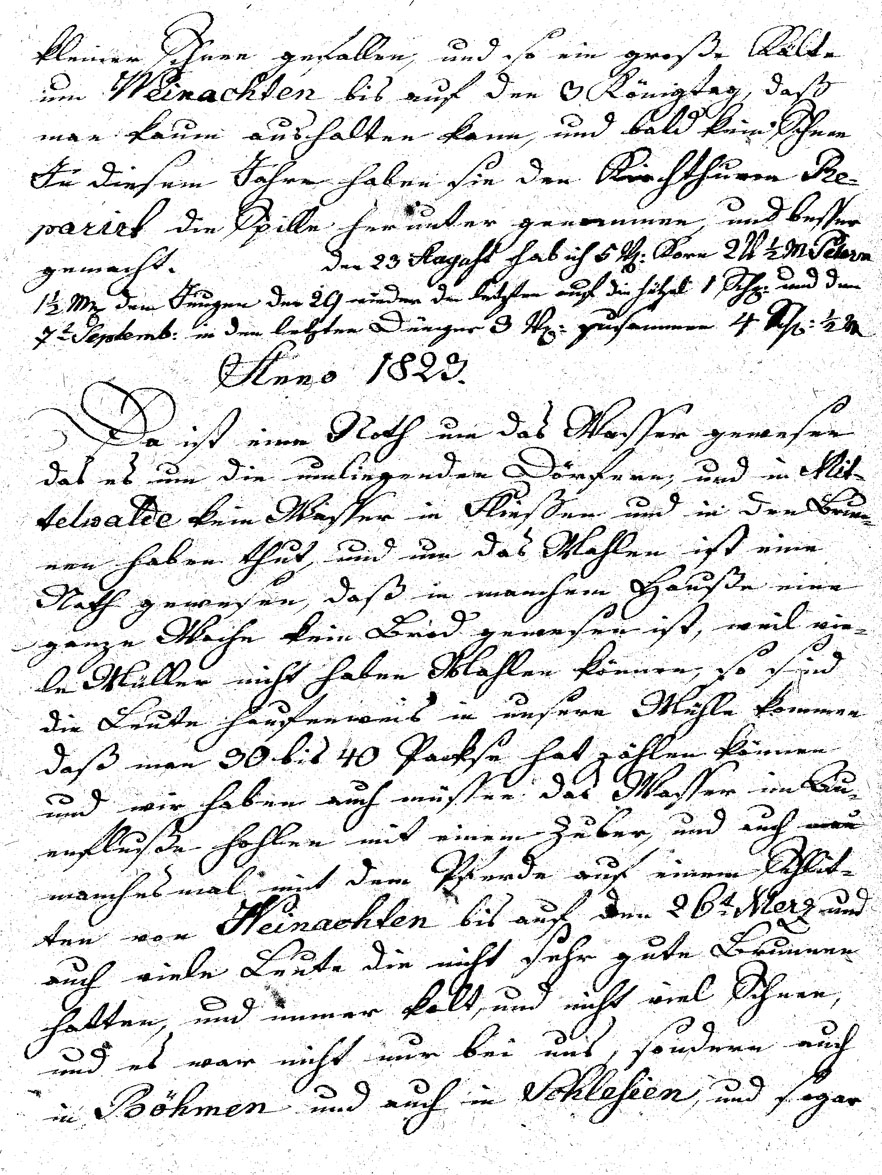 kleiner Schnee gefallen, und so ein große Kälte
um Weinachten bis auf den 3 Königtag, daß
man kaum aushalten kann, und bald kein Schnee
In diesem Jahre haben sie den Kirchthurm Re-
pariet die Spille herunter genommen, und besser
gemacht. den 23 August hab ich 5 Korn 2 ½ M
1½ Mz dem Jungen den 29 wieder die letzten auf die 1 Sch: und den
7t Septemb: in den letzten Dünger 3 zusammen 4 Sch: ½ M
Anno 1823.
Da ist eine Noth um das Wasser gewesen
das es um die umliegenden Dörfern, und in Mit-
telwalde kein Wasser in Flüssen und in den Brun-
nen haben thut, und um das Mahlen ist eine
Noth gewesen, daß in manchem Hauße eine
ganze Woche kein Brod gewesen ist, weil vie-
le Müller nicht haben Mahlen können, so sind
die Leute haufenweis in unsere Mühle kommen
daß man 30 bis 40 Packse hat zählen können
und wir haben auch müssen das Wasser im
enfluße hohlen mit einem Zuber, und auch
manchesmal mit dem Pferde auf einem Schlit-
ten von Weinachten bis auf den 26t Merz und
auch viele Leute die nicht sehr gute Brunnen
hatten, und immer kalt, und nicht viel Schnee,
und es war nicht nur bei uns, sondern auch
in Böhmen und auch in Schlesien, und sogar